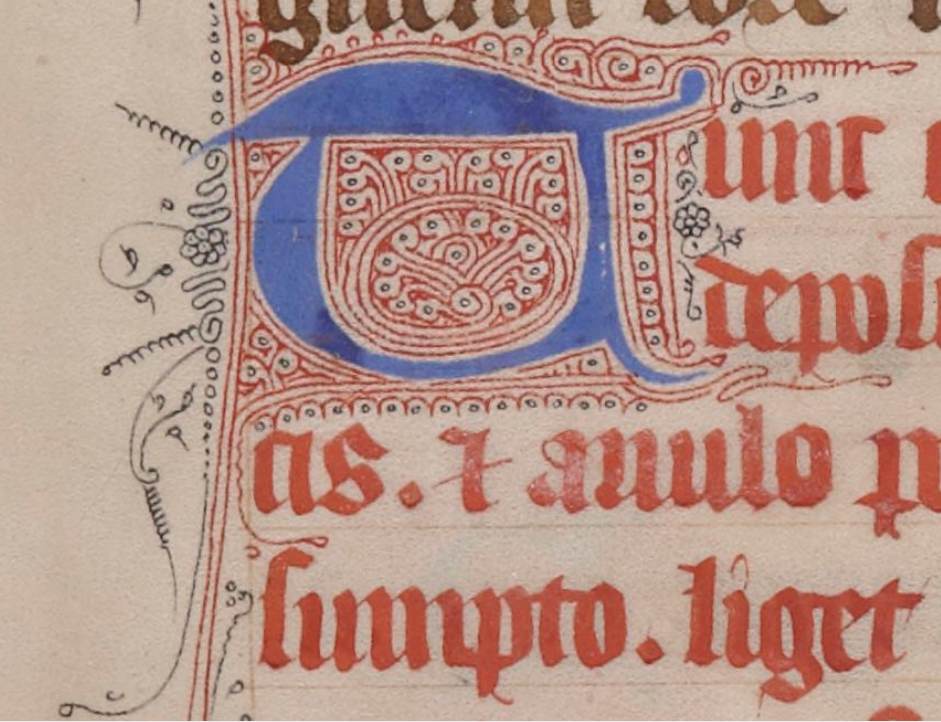 Tunc
depos
tis. ⁊ anulo p
sumpto. liget